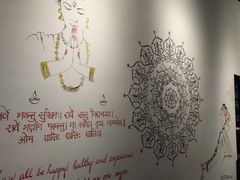 सर्वे भवन्तु सुखिनः। सर्वे सन्तु निरामयाः।
सर्वे भद्राणि पश्यन्तु। मा कश्चित् दुःख
ओम शान्तिः शान्तिः शान्तिः।
all be happy, healthy and experience